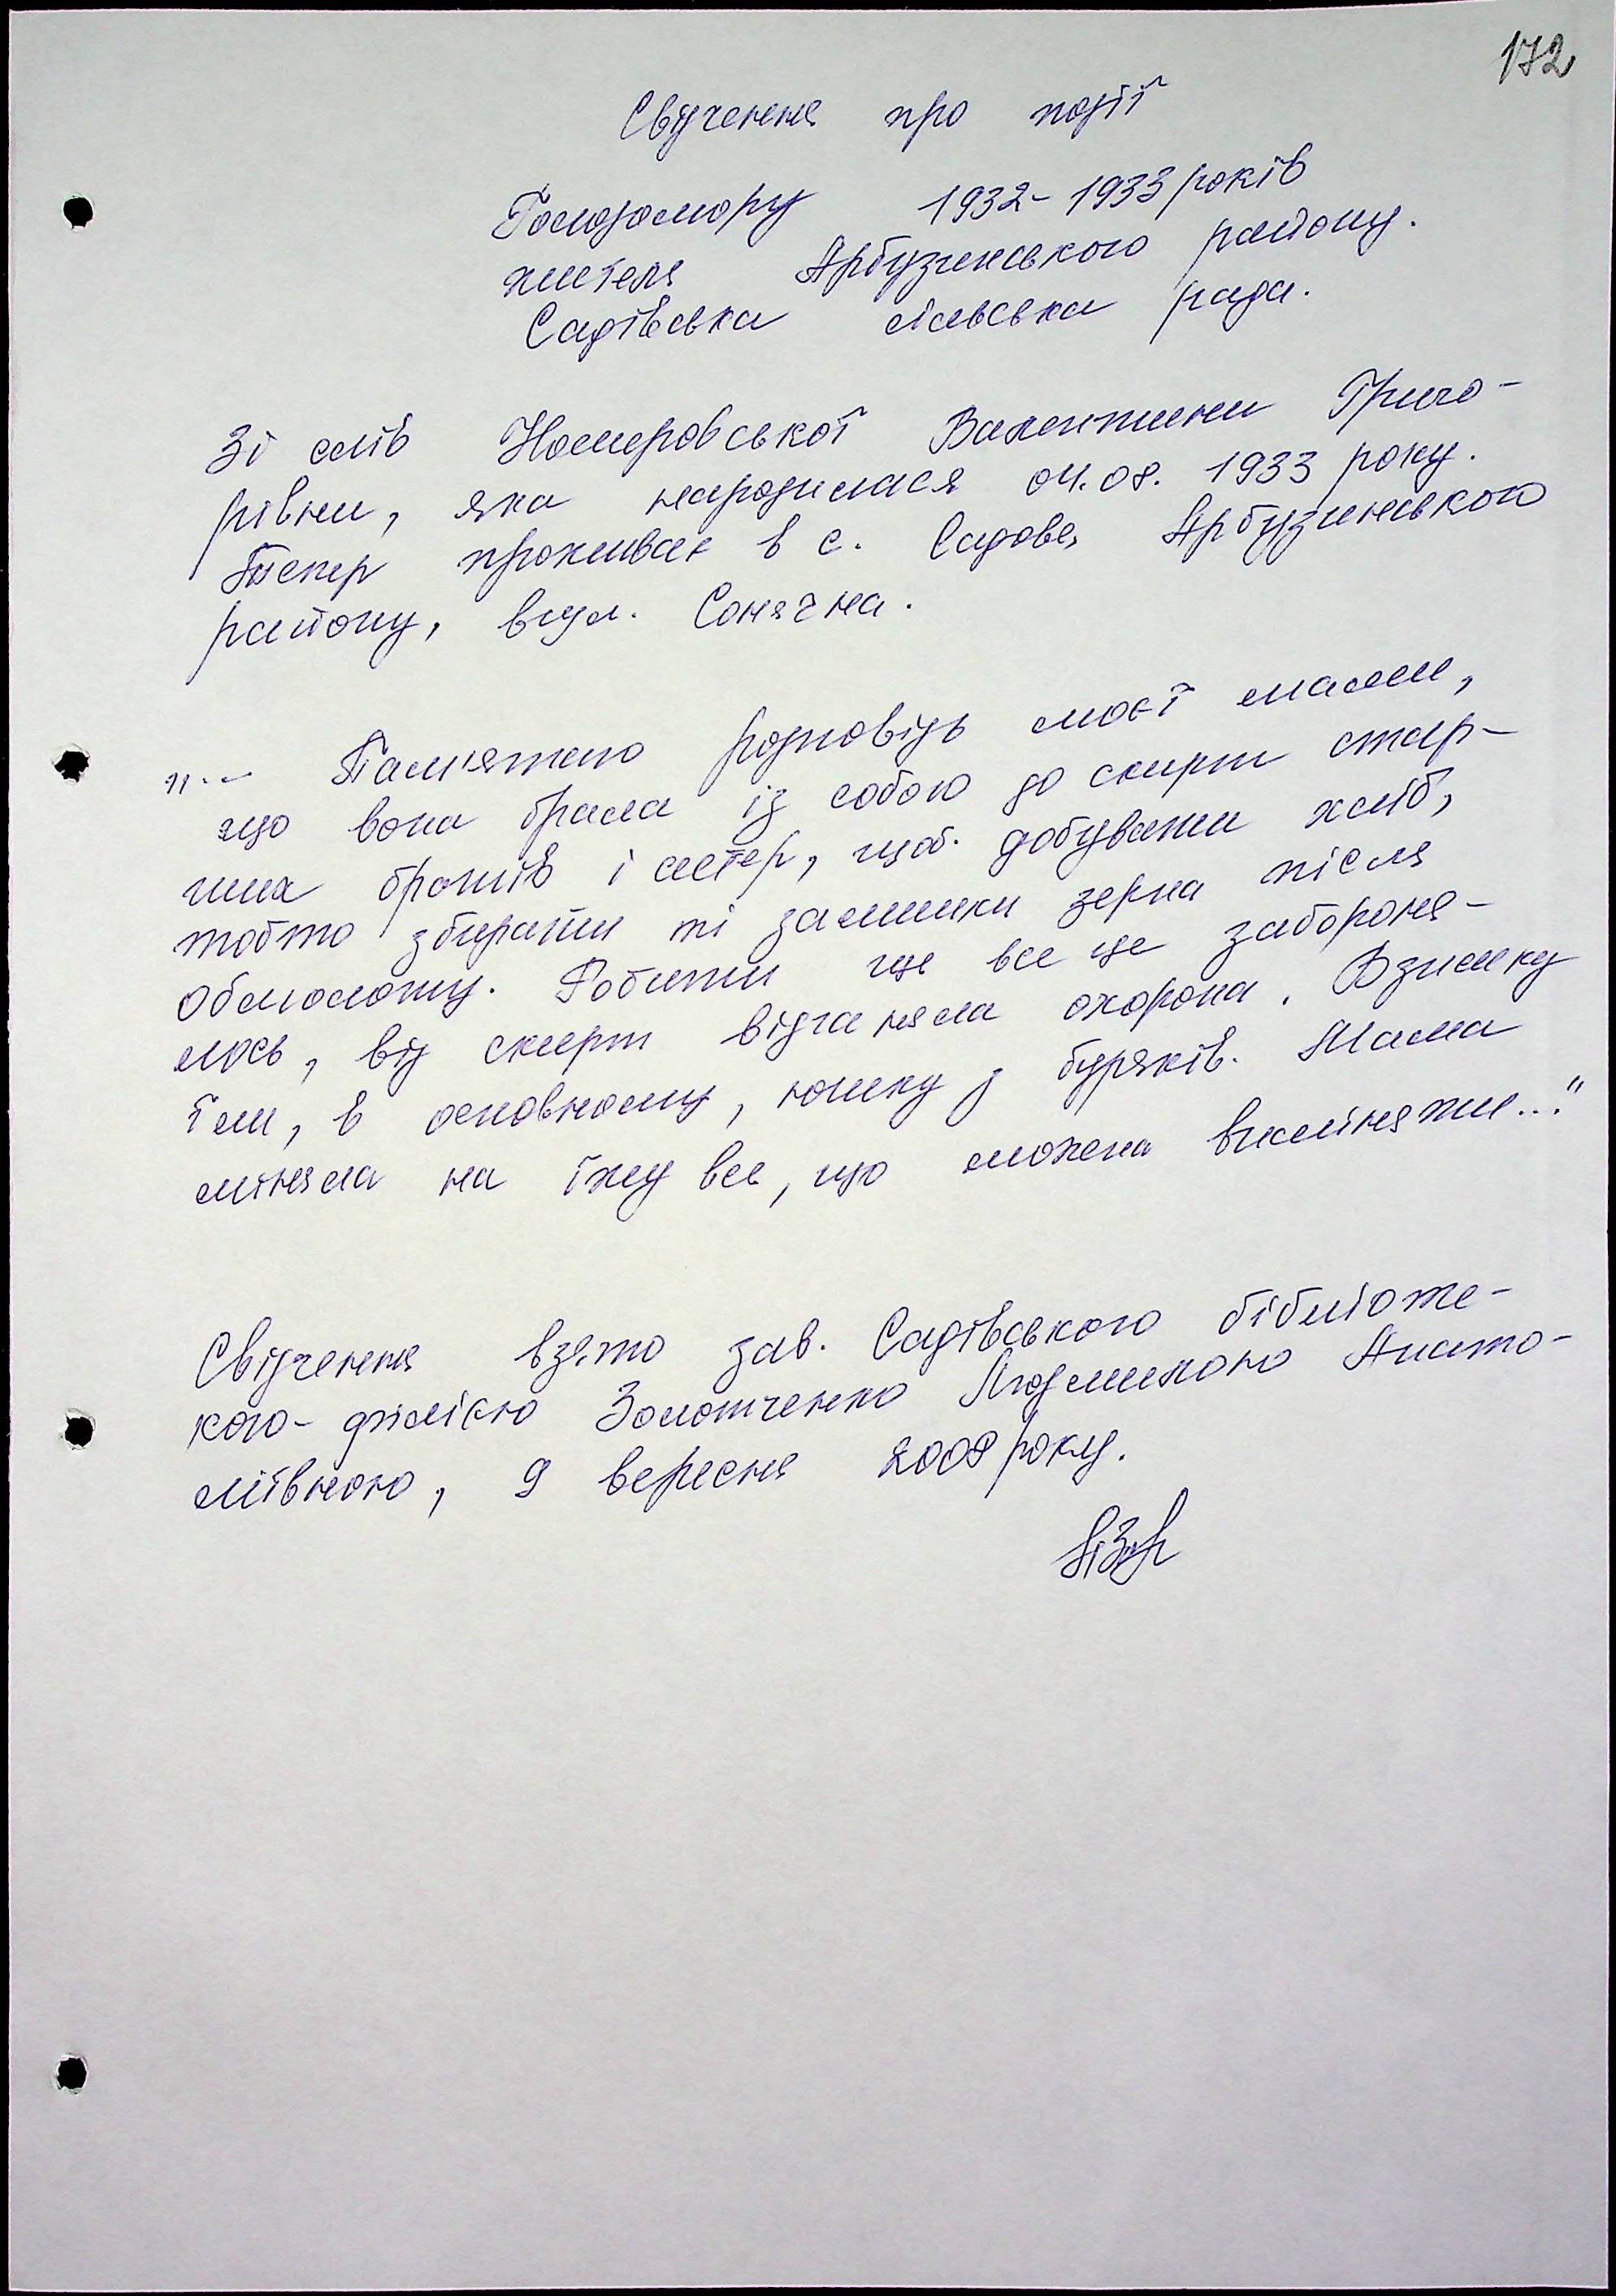 172
Свідчення про події
Голодомору 1932-1933 років
жителя Арбузинського району.
Садівська сільська рада.
Зі слів Номеровської Валентини Григо-
рівни, яка народилася 04.08. 1933 року.
Тепер проживає в с. Садове, Арбузинського
району, вул. Сонячна.
"... Пам'ятаю розповідь моєї мами,
що вона брала із собою до скирт стар-
ших братів і сестер, щоб добувати хліб,
тобто збирати ті залишки зерна після
обмолоту. Робити це все це забороня-
лось, від скирт відганяла охорона. Взимку
їли, в основному, юшку з буряків. Мама
міняла на їжу все, що можна виміняти..."
Свідчення взято зав. Садівського бібліоте-
кою-філією Золотченко Людмилою Анато-
ліївною, 9 вересня 2008 року.